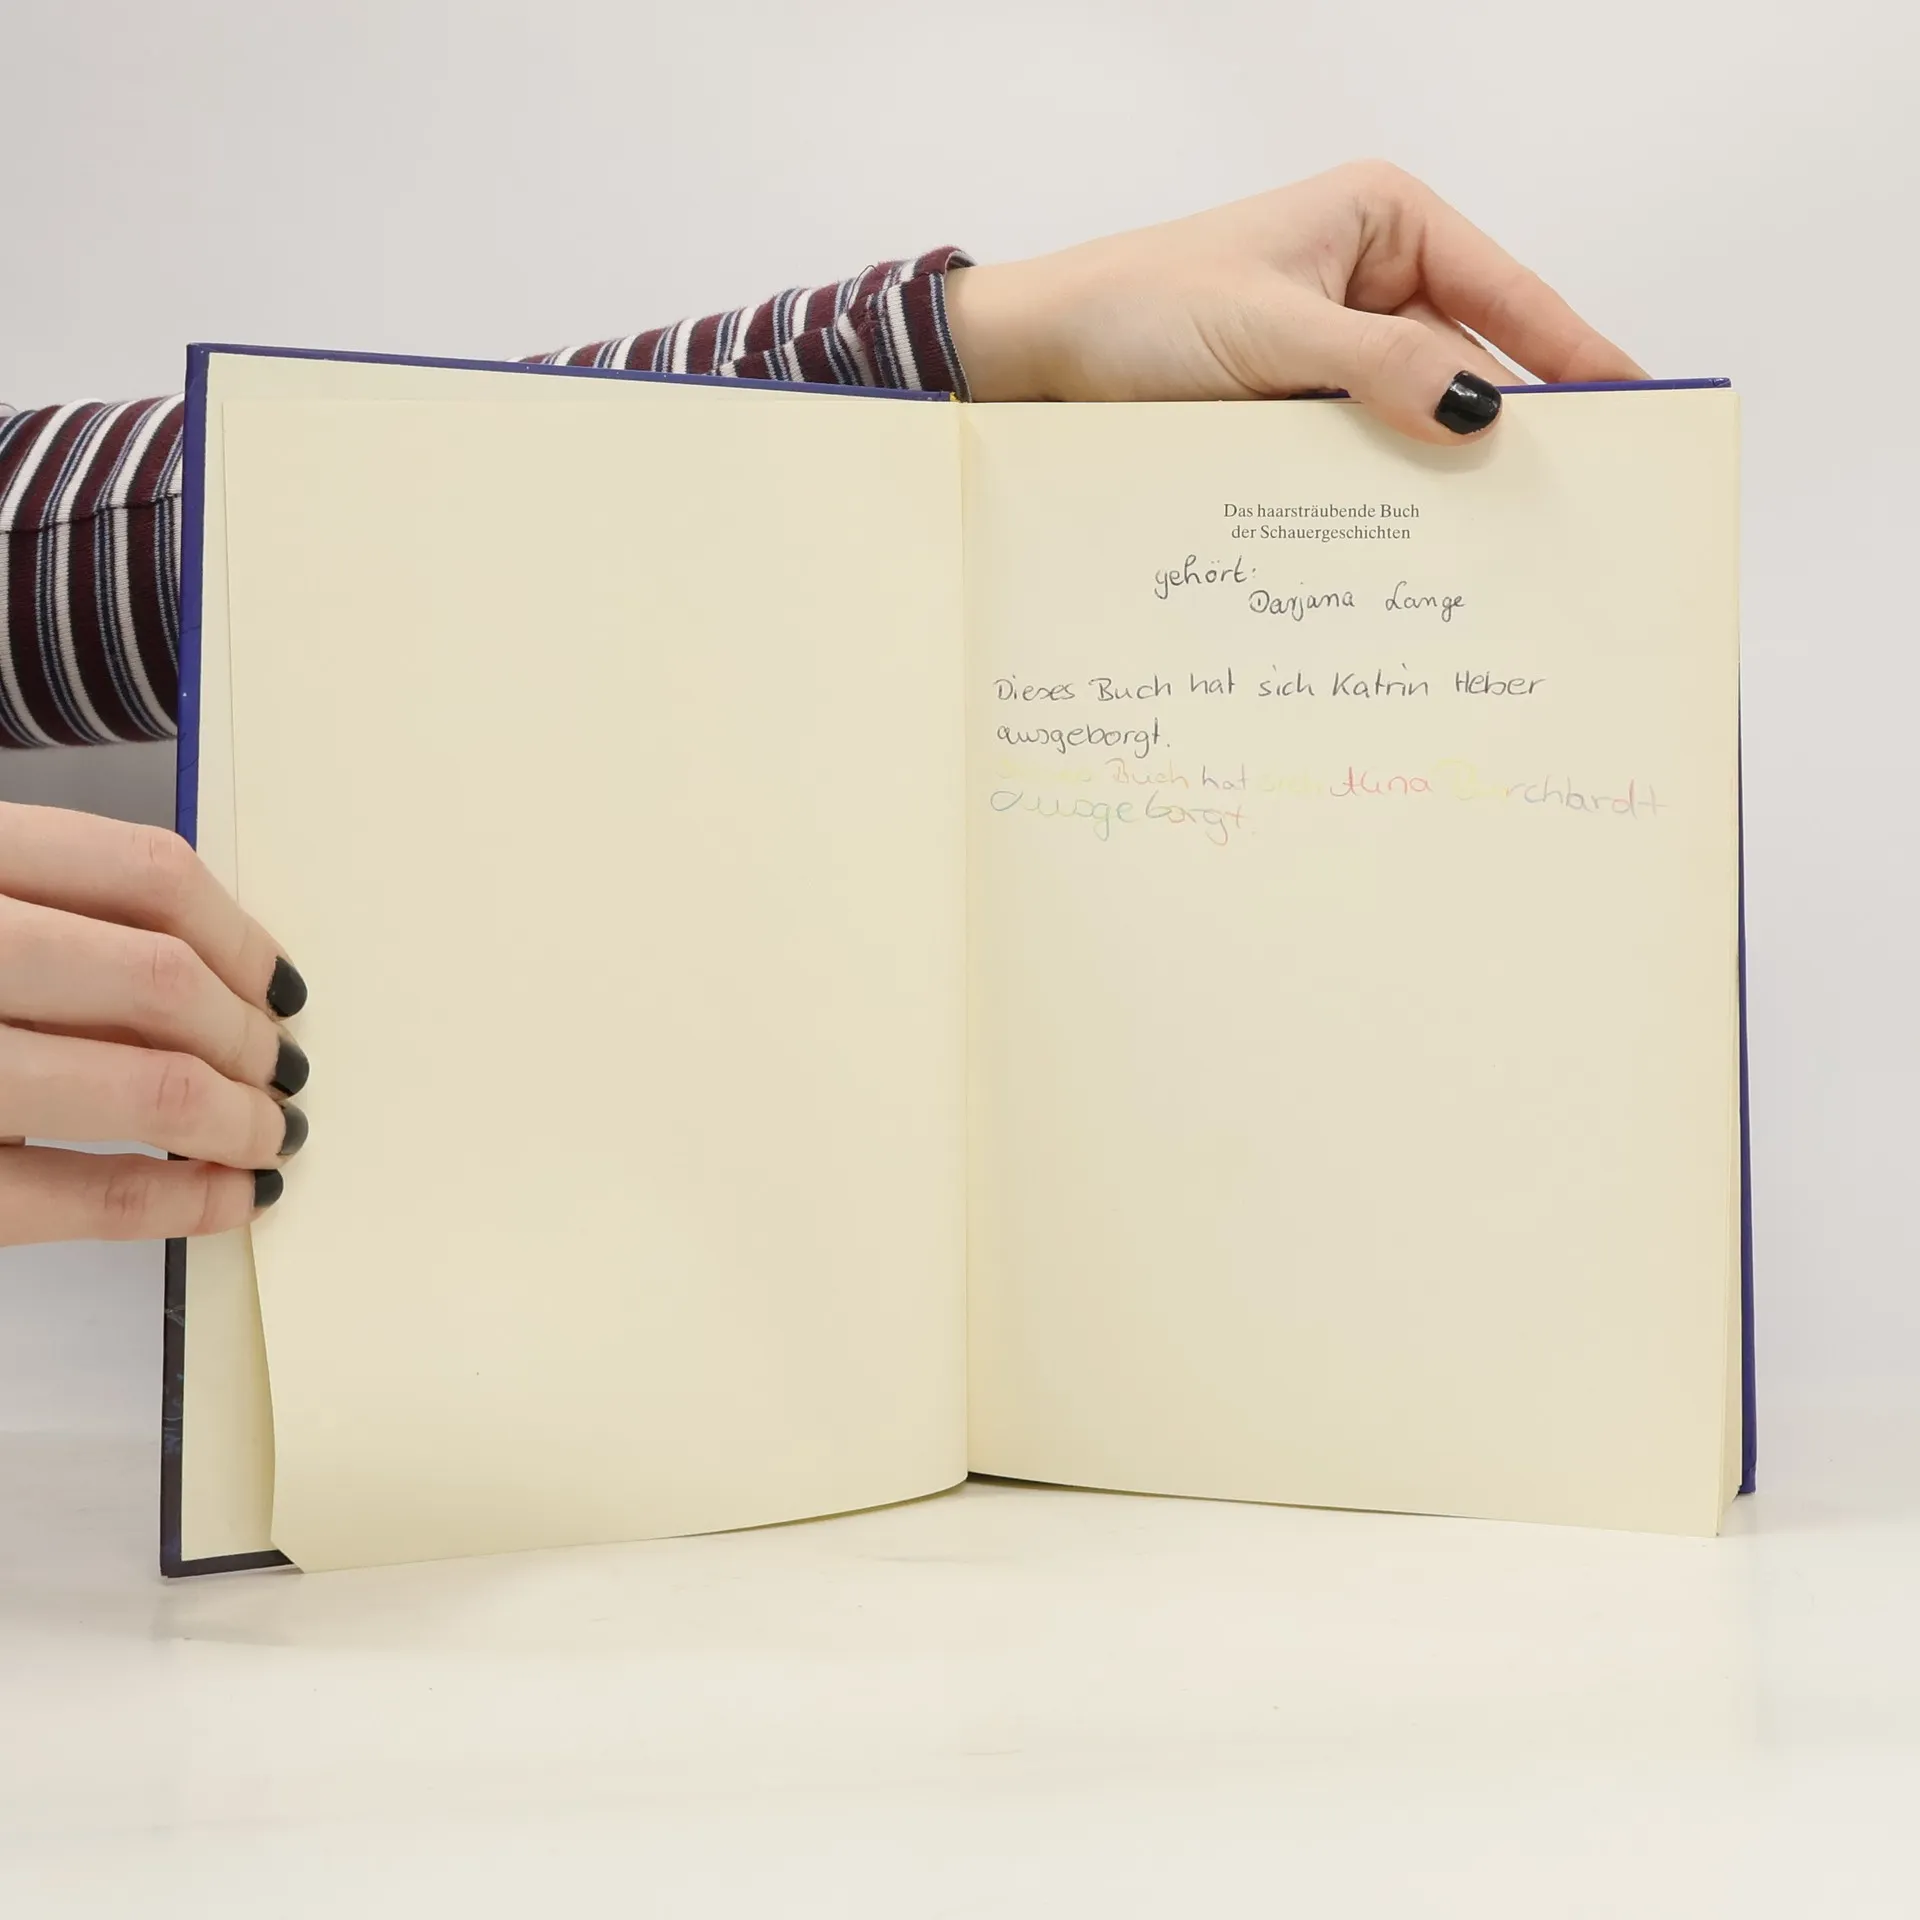 Das haarsträubende Buch
der Schauergeschichten
gehört:
Darjana Lange
Dieses Buch hat sich Katrin Heber
ausgeborgt.
Dieses Buch hat sich Alina Borchardt
ausgeborgt.